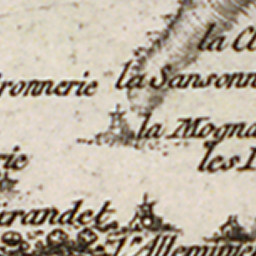 la Cl
ronnerie la Sansonn
la Mogna
rie
les
irandet
l'Alleminie